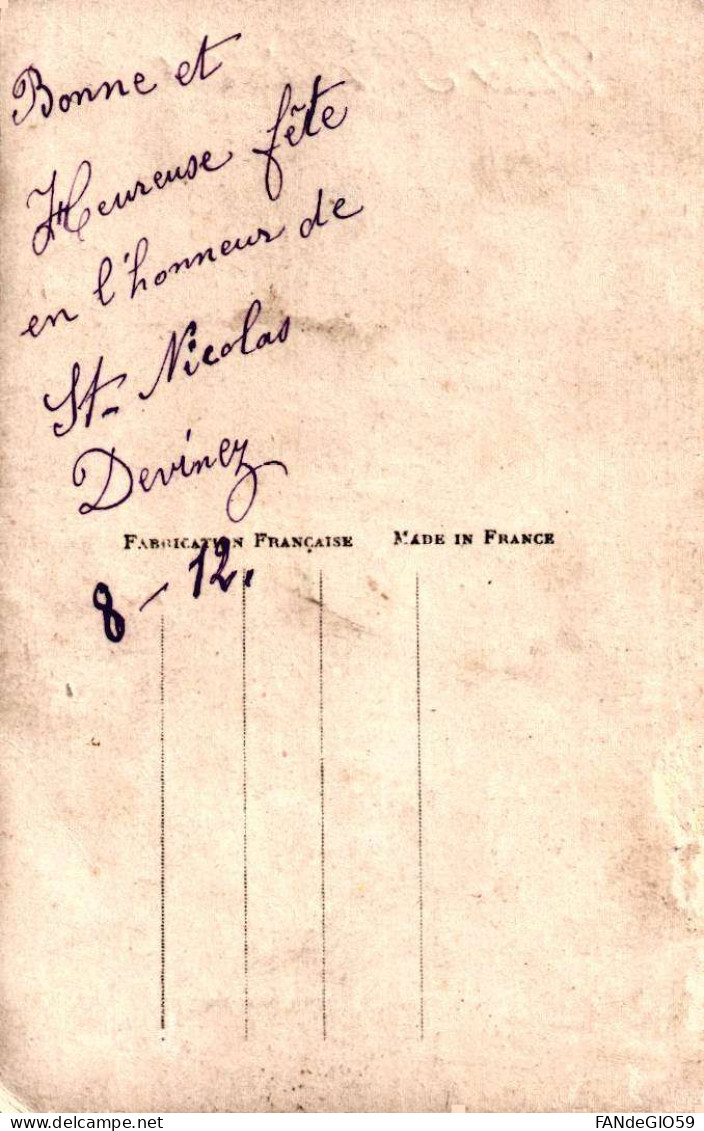 Bonne et
Heureuse fête
en l'honneur de
St- Nicolas
Devinez
FABRICATION FRANÇAISE MADE IN FRANCE
8 - 12.
delcampe.net
FANdeGIO59